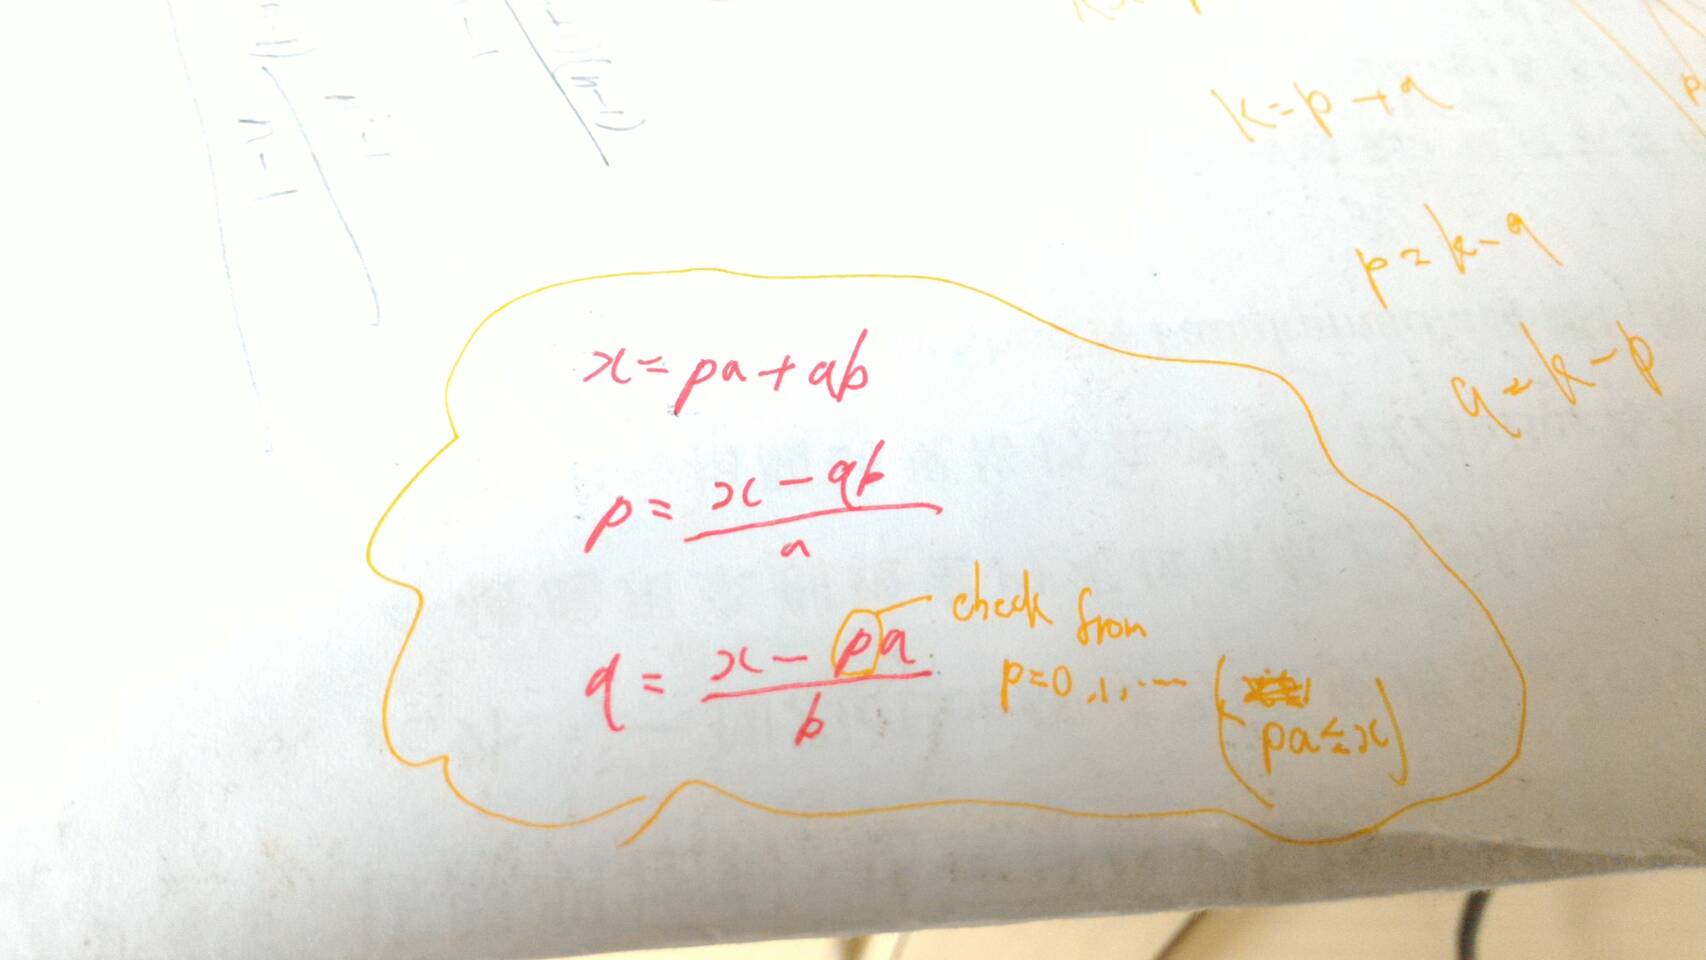 k=p+q
p=k-q
q=k-p
x=pa+qb
p=\frac{x-qb}{a}
q=\frac{x-pa}{b}
check from
p=0,1,.... (pa≤x)
n-1